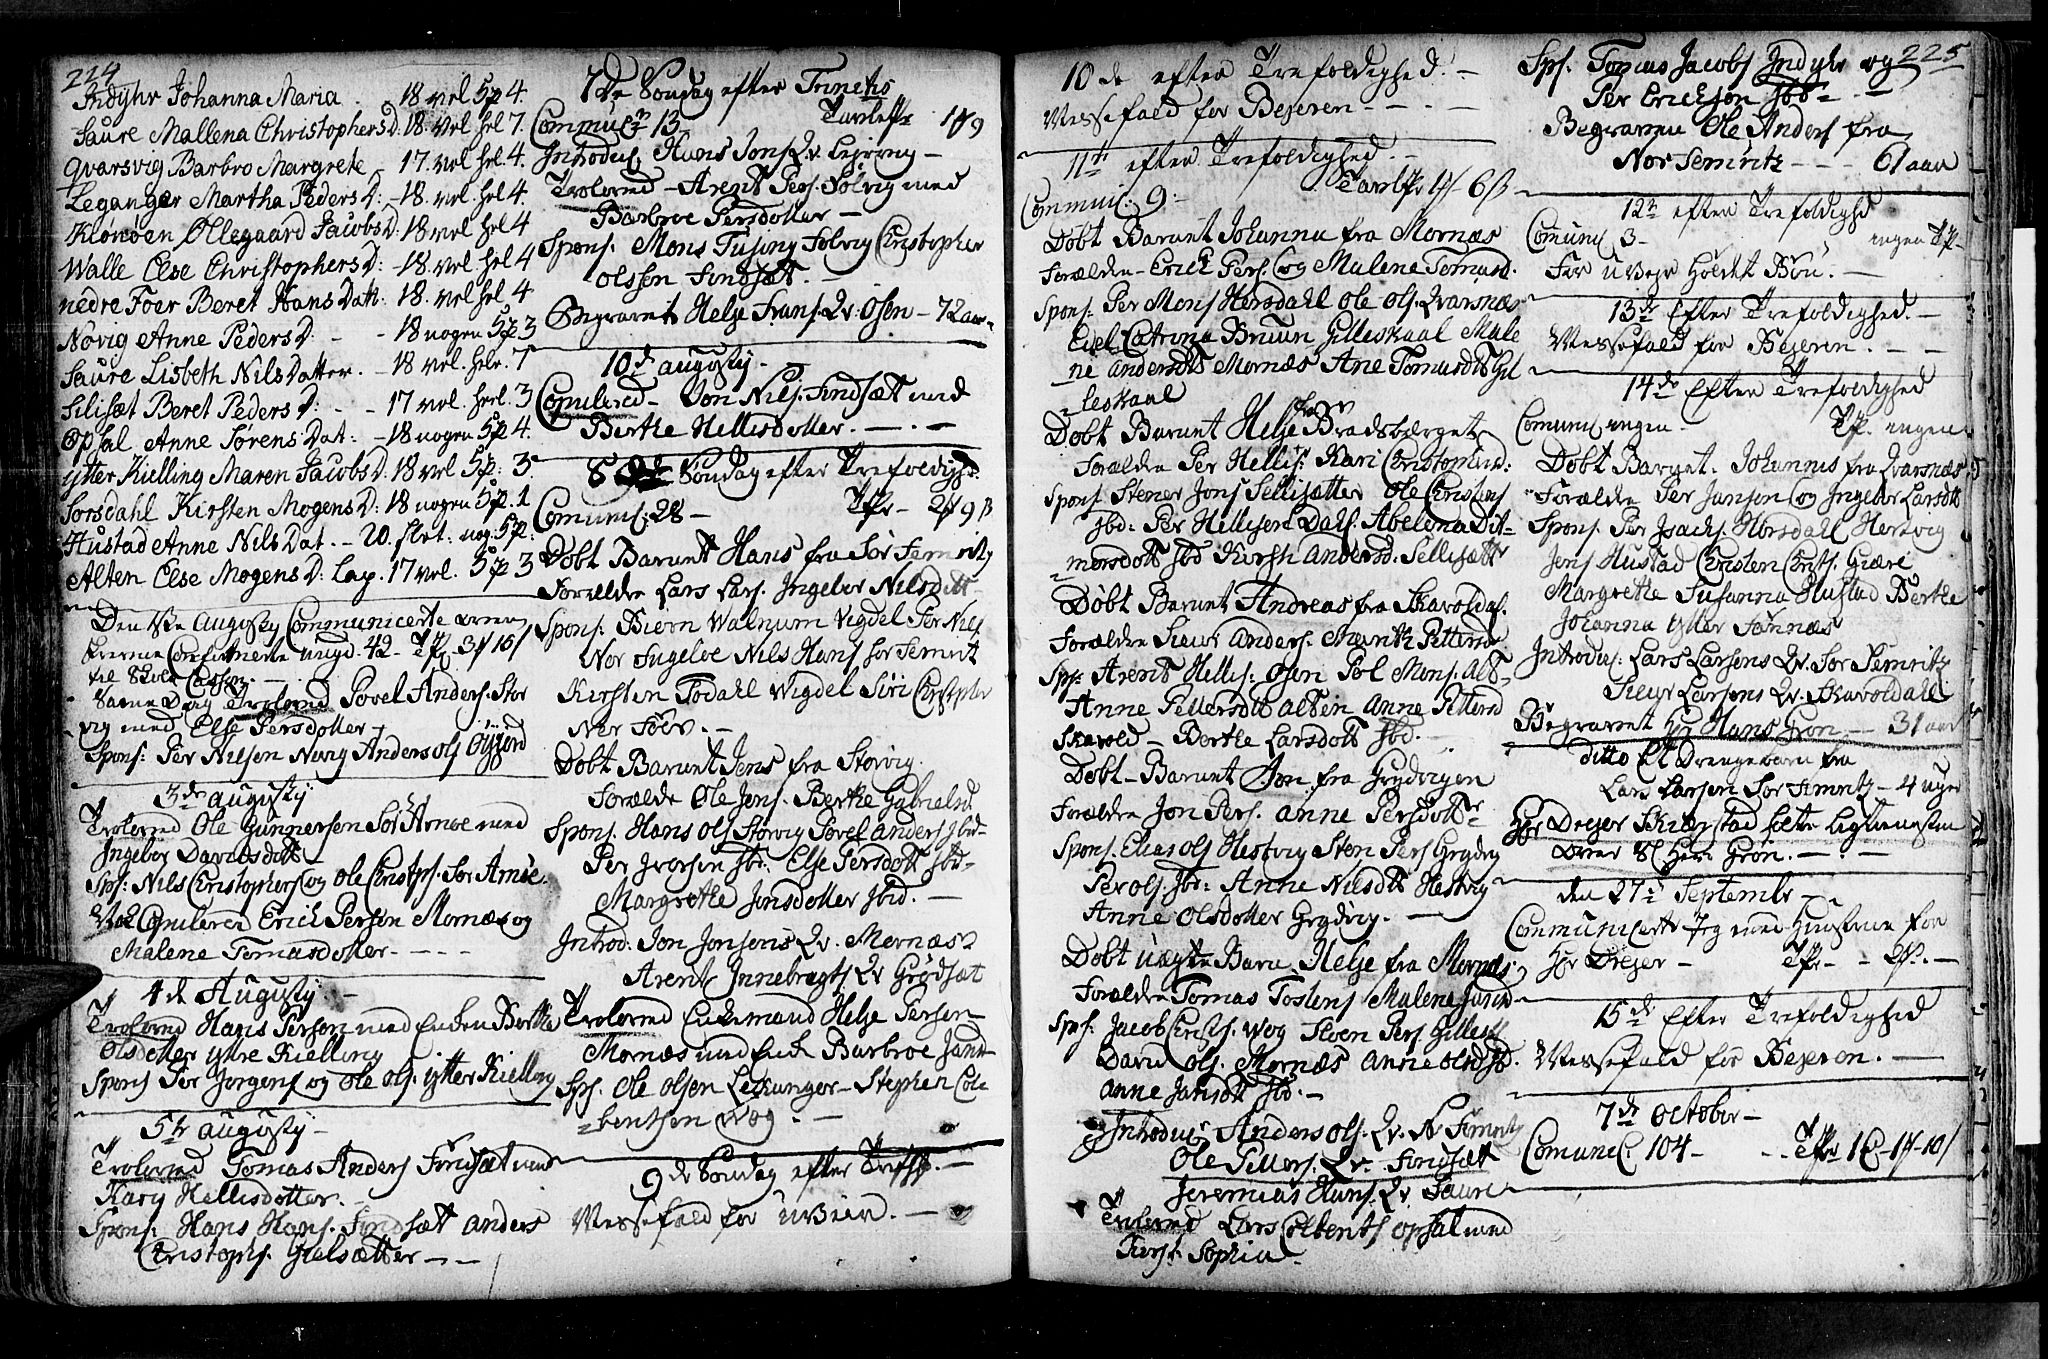 224
Indÿhr Johanna Maria. 18. vel 5p 4.
Saure Mallena ChristophersD. 18. vel. hel 7.
Qvarsvig Barbro Margrete - 17. vel hel 4.
Leganger Martha PedersD: - 18. vel. hel 4.
Klønøen Ollegaard JacobsD: - 18 vel hel 4
Walle Else ChristophersD: - 18. vel hel 4
nedre Foer Beret Hans Datt. 18. vel hel 4
Novig Anne PedersD. - 18 nogen 5p 3
Saure Lisbeth Nils Datter. - 18 vel. hele. 7
Silisæt Beret PedersD: - - 17 vel. heel. 3
Opsal Anne Sørens Dat: - 18 nogen 5p 4.
ytter Kielling Maren JacobsD. 18 vel 5p: 3
Sørsdahl Kirsten MogensD: 18 nogen 5p. 1
Hustad Anne Nils Dat. - 20. slet: nog. 5p:
Alten Else MogensD: Lap. 17 vel. 5p 3
Den 1te Augustij Communicerte
Confirmerte ungd. 42 - Tfl. 10 ſ
Samme Dag Troloved Povel Anders. Stor
vig med Else Persdotter
Spons: Per Nilsen Nervig Anders Ols Øÿjord
3de augustÿ
Troloved Ole Gunnersen Sør Arnøe med
Ingebor Davidsdotter
Sps: Nils Christophers og Ole Christophs. Sør Arnøe.
Copulered Erich Persen Mornæs og
Malene Tomasdotter - - - -
4de Augustÿ -
Troloved Hans Persen med Enken Berthe
Olsdotter ytre Kielling
Spons Per Jørgens og Ole Ols. ytter Kielling
5te augustÿ -
Troloved Tomas Anders Findsæt med
Kary Hellisdotter. -
Spons: Hans Hans. Findsæt Anders
Christophs. Gielsætter - - -
7de Søndag efter Trinetis
Communic 13 Tavlefl. 1 9
Introduc. Hans Jens. Qv.
Troloved - Arent Pers. Solvig med
Barbroe Persdotter -
Spons. Mons Solvig Christopher
Olssen Findsæt. -
Begravet Helje Frans. Qv. Osen - 72 aar
10de augustij -
Copulered - Jon Nils. Findsæt med
Berthe Hellisdotter. - . -
8de Søndag efter Trefoldigh
Comunic: 28 - Tfl. - 2 9 ß
Døbt Barnet Hans fra Sør Femritz
Forældre Lars Lars. Ingebor Nilsdott -
Spons. Biørn Walnum Vigdel Per Nils.
Nor Fugeløe Nils Hans Sør Femrit
Kirsten Todahl Vigdel Siri Christopher
Ner Foer. -
Døbt Barnet Jens fra Storvig.
Forælde Ole Jens. Berthe Gabrielsd
Spons. Hans Ols Storvig Povel Anders Jbid -
Per Ivarsen Jbi. Else Persdott Jbd -
Margrethe Jonsdotter Jbid. -
Introd: Jon Jonsens Qv. Mornæs
Arent Innebregts Qv Grødsæt
Trolovед Enkemand Helje Persen
Mornæs med Barbroe
Sps. Ole Olsen Lekanger - Stephen Cole
benthsen Wog. -
9de Søndag efter Trefh. -
Messefald for Uveir. -
10de efter Trefoldighed. -
Messefald for Bejeren - - - -
11te efter Trefoldighed. -
Communic. 9 - Tavlfl 1 6 ß
Døbt Barnet Johanna fra Mornæs
Forældre - Erich Pers. og Malene Tomasd.
Spons: Per Mons Horsdahl Ole Ols. Qvarsnæs
Edel Catrina Bruun Gilleskaal Male
ne Andersdt Mornæs Ane Tomasdt Gil
leskaal
Døbt Barnet Helje fra Bradsbærget
Forælde Per Hellis: Kari Christophersd:
Spons. Stener Jons Sellisætter Ole Christens
Jbd: Per Hellisen Dals. Abelena Dit
mersdott Jbd Kirsth Andersd. Sellisætter
Døbt Barnet Andreas fra Skavoldal.
Forældre Siewr Anders. Marith Pettersd
Sps: Arent Hellis: Osen Pol Mons. Alt
Anne Pettersdt Alten Anne Pettersd
Skavold - Berthe Larsdott Jbd. -
Døbt - Barnet Jon fra Grydvigen
Forældre Jon Pers. Anne Persdotter
Spons. Elias Ols Hestvig Sten Pers Grydvig
Per Ols. Jbd: Anne Nilsdt Hestvig
Anne Olsdotter Grydvig. -
Døbt Uægte Barn Helje fra Mornæs
Forældre Tomas Tostens Malene Jansd
Sps. Jacob Christs. Wog Steen Pers. Gillesk
David Ols. Mornæs Anne Olsd Jbd.
Anne Jansdt Jbd. -
Introduc: Anders Ols. Qv. N Femritz
Ole Petters. Qv. Findsæt
Jeremias Hans. Qv Saure
Troloved Lars Colbenths Opsal med
Kirst. Sophia -
225
Sps. Tomas Jacobs Indyhr og
Per Ericksen Jbd - -
Begraven Ole Anders fra
Nor Femritz - - - 61 aar
12te efter Trefoldighd
Comunic 3 - ingen Tfl -
For Uvejr Holdet Bøn. -
13de Efter Trefoldighed. -
Messefald for Bejeren. - - -
14de Efter Trefoldighed
Comunic ingen - Tfl. ingen
Døbt Barnet. Johannis fra Qvarsnæs
Forældre Per Jansen og Ingebor Larsdt
Spons. Per Isachs. Horsdahl Hertvig
Jens Hustad Christen Christs. Giære
Margrethe Susanna Hustad Berthe
Johanna ytter Fønnæs
Introduc: Lars Larsens Qv. Sør Femritz
Siewr Larsens Qv. Skavoldahl
Begravet Hr Hans Grøn - - 31 aar
ditto Et Drengebarn fra
Lars Larsen Sør Femritz - 4 uger
Hr Dreyer Skierstad Ligtienesten
over Sl Herr Grøn. - . -
den 27de September -
Communicerte Jeg med Hustrue for
Hr Dreyer - Tfl -
15de Efter Trefoldighed
Messefald for Bejeren. -
7de October -
Comunic. 104 - - - Tfl 1 - 1 - 10 ſ